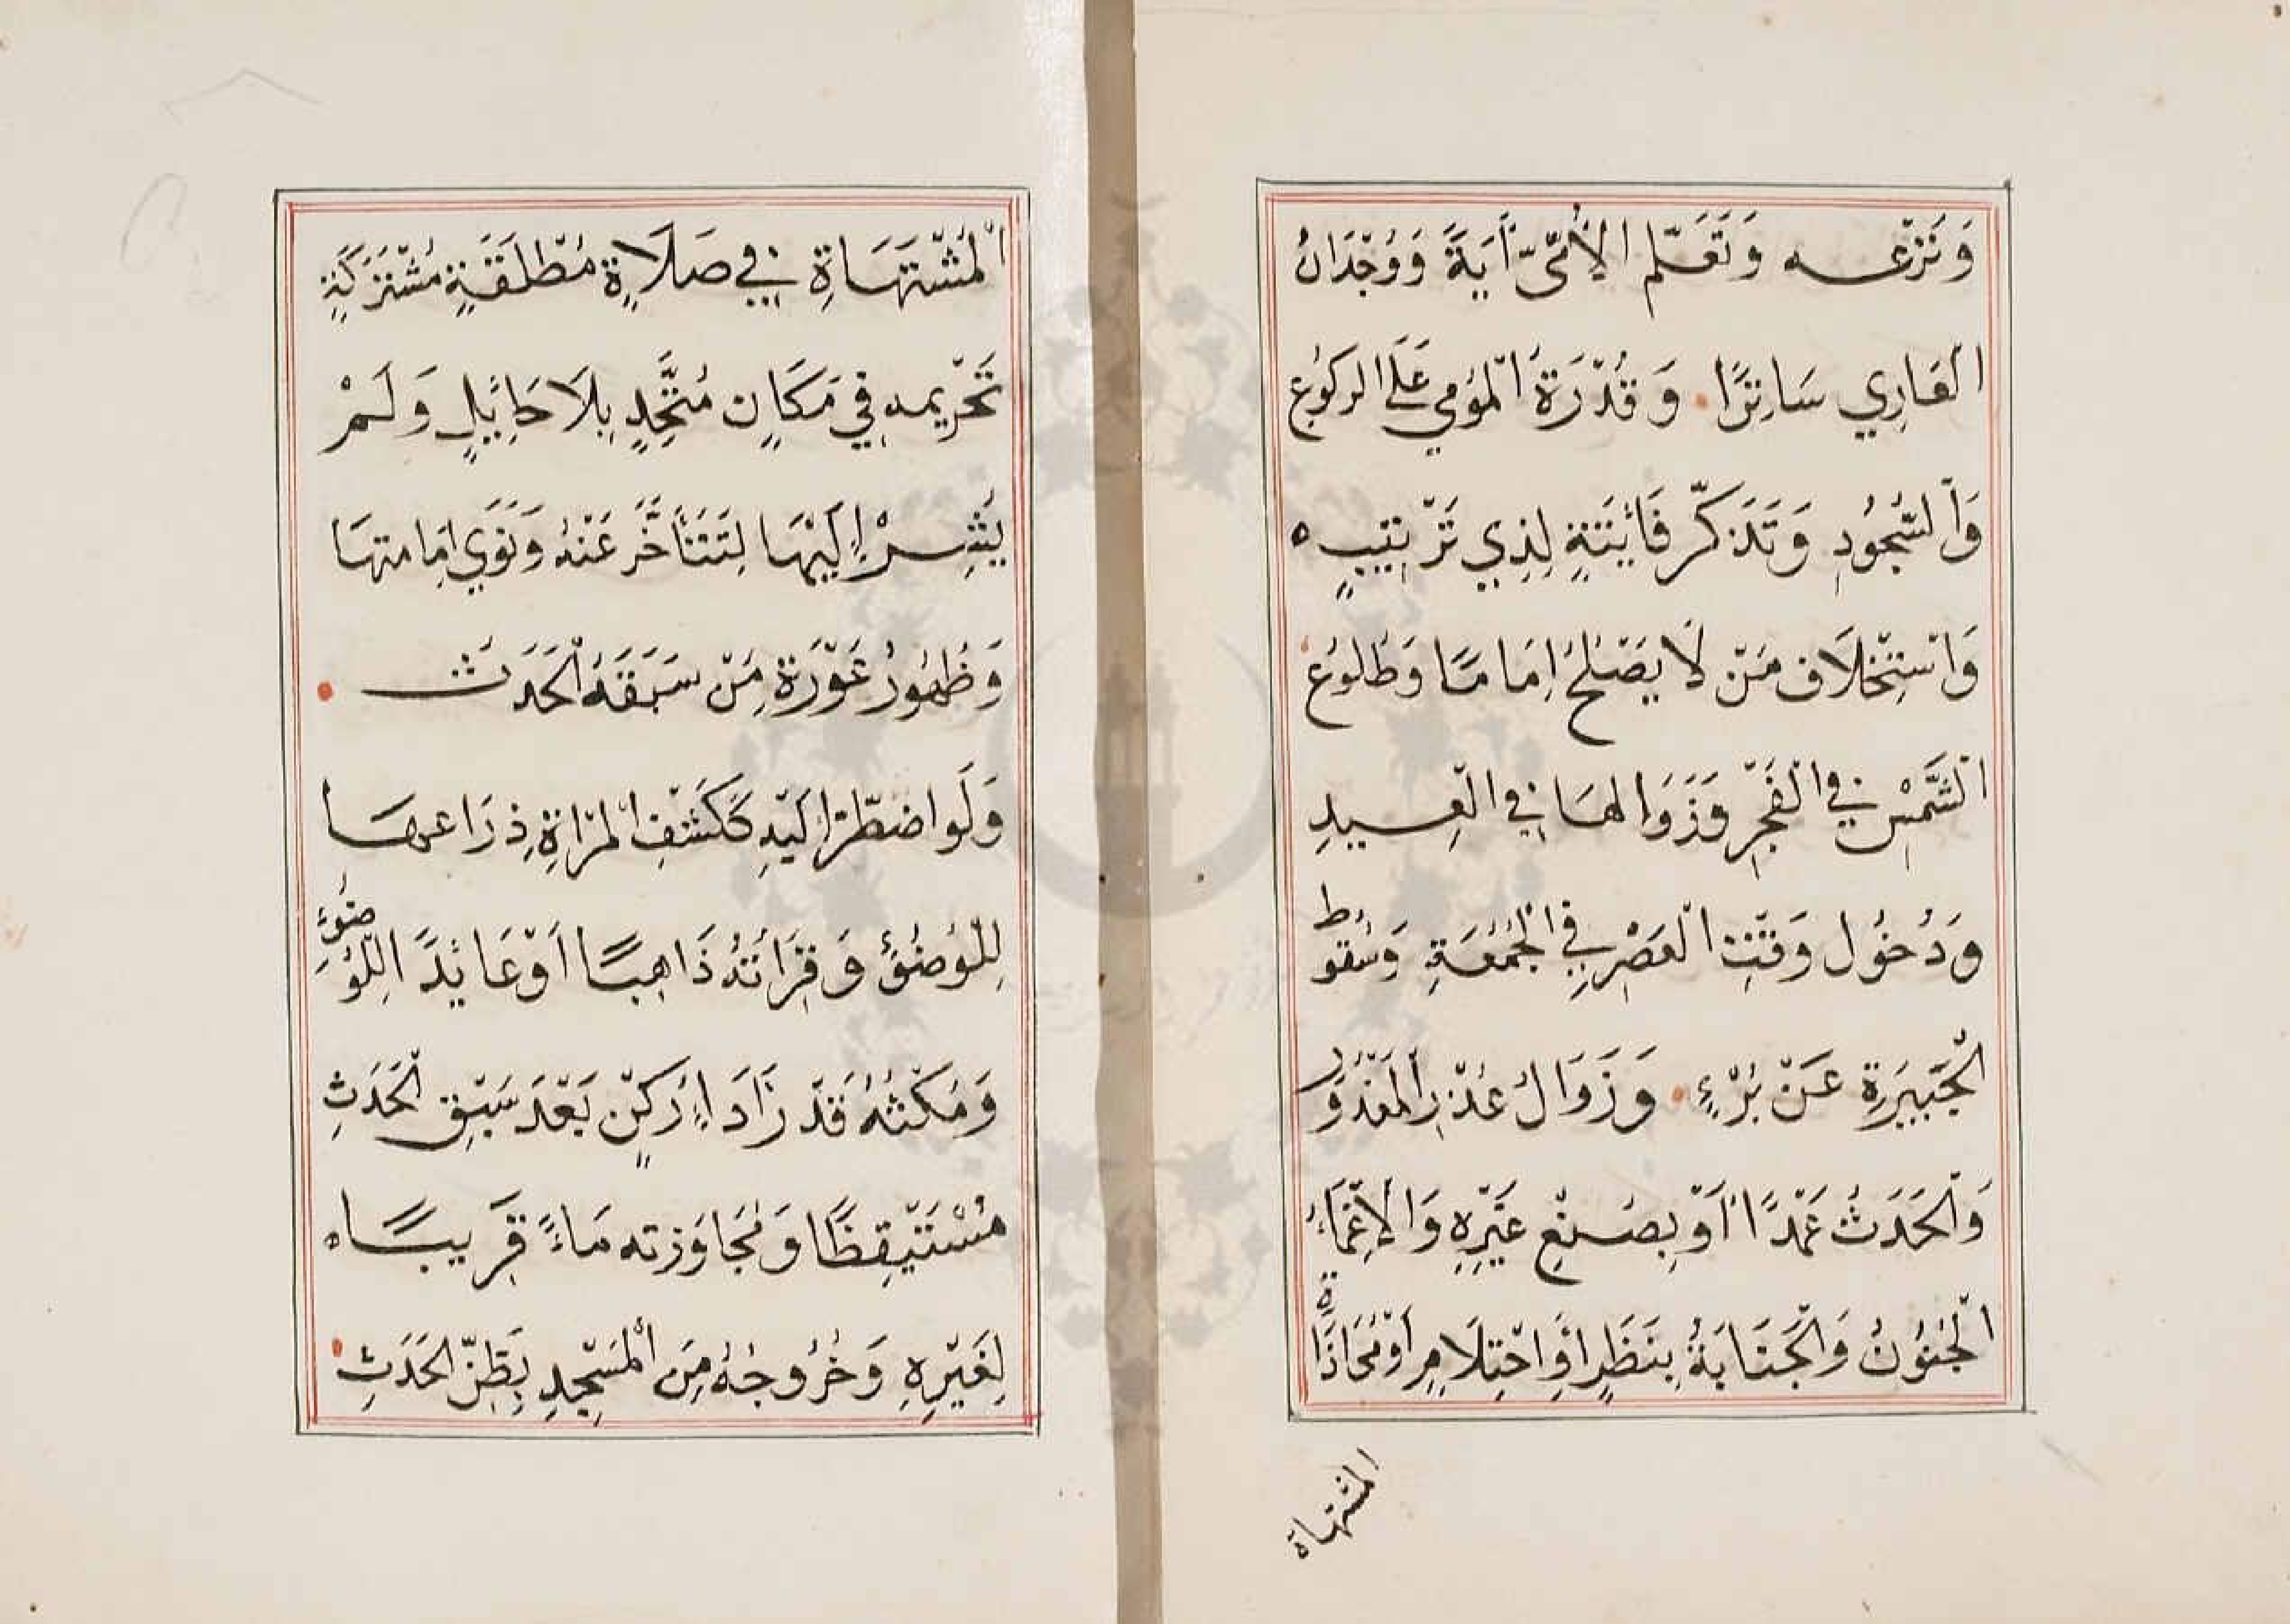 وَنَزْعه وَتَعَلّم الأُمّىّ اَيَةً وَوُجْدَانُ
الْعَارِي سَاتِرًا. وَقُدْرَةُ الْمُومِي عَلَى الركُوُع
وَالسُّجُودِ وَتَذكّر فَائِتَةٍ لِذِي تَرْتِيبٍ ه
وَاسْتِخْلَاف مَنْ لَا يَصْلُحُ اِمَامًا وَطُلوُع
الشَّمْسِ فِي الْفَجْرِ وَزَوَالهَا فِي الْعِيدِ
وَدُخُول وَقْتِ الْعَصْرِ فِي الْجُمُعَةِ وَسُقُوط
الْجَبِيرَةِ عَنْ بُرْءٍ. وَزَوَالُ عُذْرِ الْمَعْذُوْرِ
وَالْحَدَثُ عَمْدًا اَوْ بِصُنْعِ غَيْرِهِ وَالْاِغْمَاءُ
الْجُنُونُ وَالْجَنَابَةُ بِنَظَرٍ اَوِ احْتِلَامٍ اَوْ مُحَاذَاة
المشتهاة
الْمُشْتَهَاةِ فِي صَلَاةٍ مُطْلَقَةٍ مُشْتَرَكَةٍ
تَحْرِيمه فِي مَكَانٍ مُتَّحِدٍ بِلَا حَائِلٍ وَلَمْ
يُشِرْ إِلَيْهَا لِتَتَأَخَّرَ عَنْهُ وَنَوَي اِمَامتهَا
وَظُهُورُ عَوْرَةِ مَنْ سَبَقَهُ الْحَدَثُ .
وَلَو اضطُرَّ اِلَيْهِ كَكَشْفِ الْمَرْاَةِ ذِرَاعهَا
لِلْوُضُوْءِ وَقِرَاَتُهُ ذَاهِبًا اَوْ عَائِدًا لِلْوُضُوْءِ
وَمُكْثُهُ قَدْرَ اَدَاءِ رُكْنٍ بَعْدَ سَبْقِ الْحَدَثِ
مُسْتَيْقِظًا وَمُجَاوَزته مَاءً قَرِيبًا ه
لِغَيْرِهِ وَخُرُوجُهُ مِنَ الْمَسْجِدِ بِظَنِّ الْحَدَثِ .